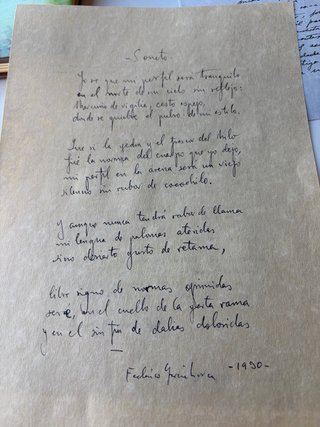 - Soneto -
Yo se que mi perfil será tranquilo
en el norte de un cielo sin reflejo:
Mercurio de vigilia, casto espejo,
donde se quiebre el pulso de mi estilo.
Que si la yedra y el frescor del hilo
fué la norma del cuerpo que yo dejo,
mi perfil en la arena será un viejo
silencio sin rubor de cocodrilo.
Y aunque nunca tendrá sabor de llama
mi lengua de palomas ateridas
sino desierto gusto de retama,
libre signo de normas oprimidas
seré, en el cuello de la yerta rama
y en el sin fin de dalias doloridas
Federico García Lorca - 1930 -